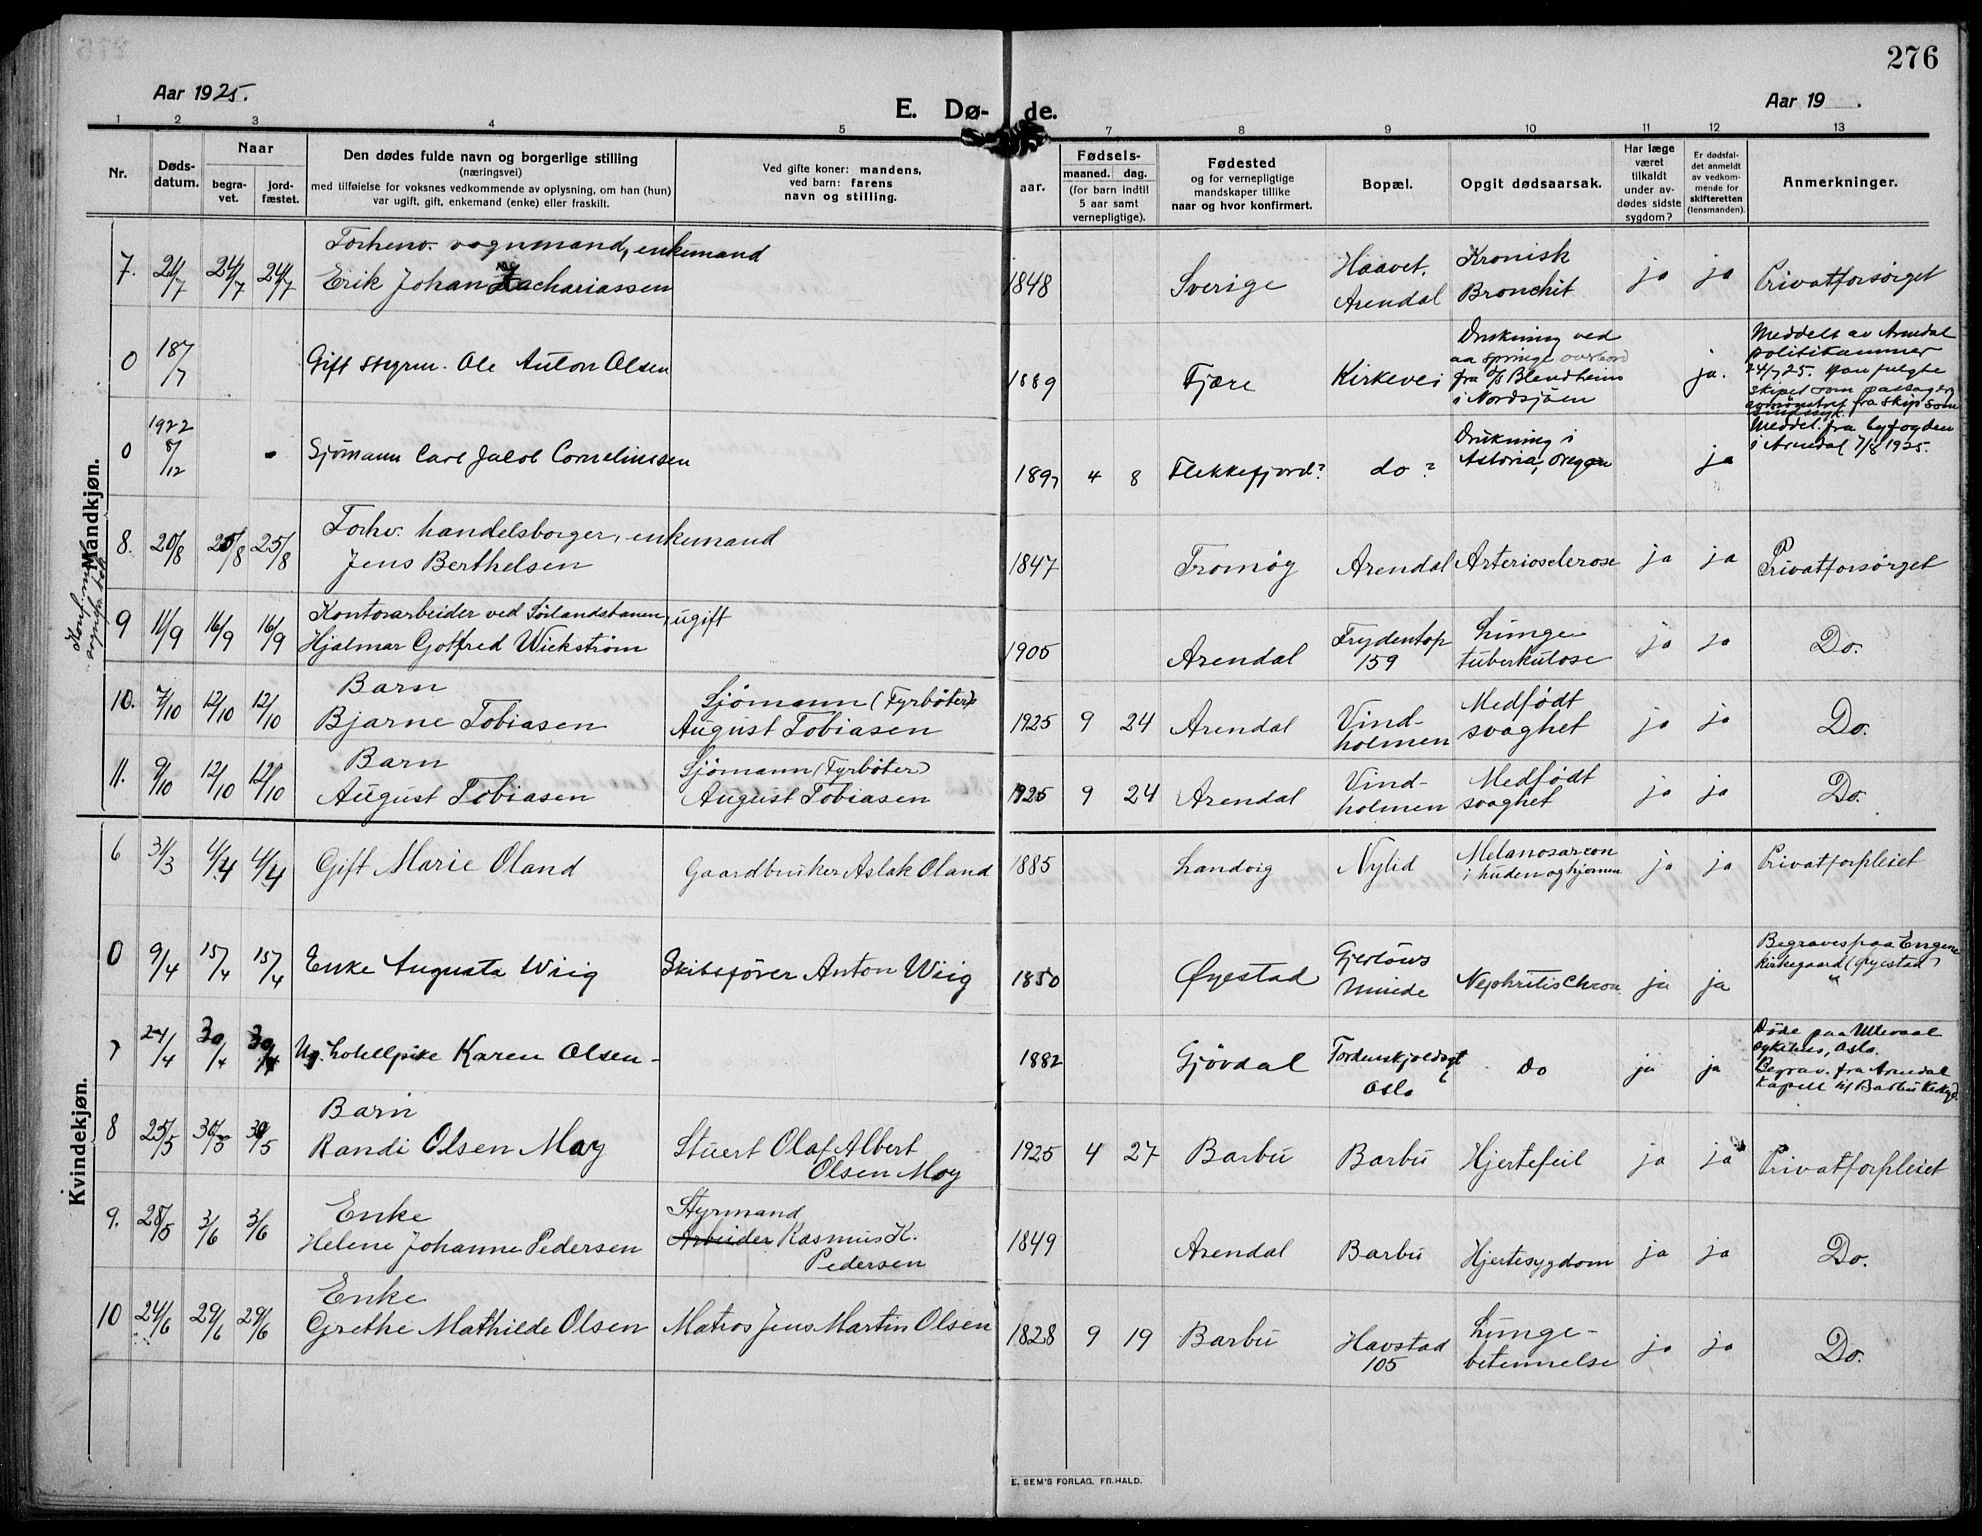 276
Aar 1925.
E. Dø- de.
Aar 19 .
1 2 3 4 5 7 8 9 10 11 12 13
Nr.
Døds-
datum.
Naar
begra-
vet.
jord-
fæstet.
Den dødes fulde navn og borgerlige stilling
(næringsvei)
med tilføielse for voksnes vedkommende av oplysning, om han (hun)
var ugift, gift, enkemand (enke) eller fraskilt.
Ved gifte koner: mandens,
ved barn: farens
navn og stilling.
aar.
Fødsels-
maaned. dag.
(for barn indtil
5 aar samt
vernepligtige).
Fødested
og for vernepligtige
mandskaper tillike
naar og hvor konfirmert.
Bopæl.
Opgit dødsaarsak.
Har læge
været
tilkaldt
under av-
dødes sidste
sygdom?
Er dødsfal-
det anmeldt
av vedkom-
mende for
skifteretten
(lensmanden).
Anmerkninger.
Mandkjøn.
7. 21/7 24/7 24/7
Forhenv. vognmand, enkemand
Erik Johan Zachariassen
1848 Sverige
Haavet.
Arendal
Kronisk
Bronchit
ja ja Privatforsørget
0 18/7
Gift styrm. Ole Anton Olsen
1889 Fjære Kirkevei
Drukning ved
aa springe overbord
fra D/S Blendheim
i Nordsjøen
ja.
Meddelt av Arendal
politikammer
24/7 25. Han fulgte
skipet som passager
avmønstret fra skip som
sindssyk.
0 1922
8/12
Sjømann Carl Jacob Corneliussen
1897 4 8 Flekkefjord? do?
Drukning i
Astoria, Oregon
ja
Meddel. fra byfogden
i Arendal 7/8 1925.
8. 20/8 25/8 25/8
Forhv. handelsborger, enkemand
Jens Berthelsen
1847 Tromøy Arendal Arteriosclerose ja ja Privatforsørget
9 11/9 16/9 16/9
Kontorarbeider ved Sørlandsbanen, ugift
Hjalmar Gotfred Wickstrøm
1905 Arendal
Frydentop
159
Lunge
tuberkulose
ja ja Do.
10. 7/10 12/10 12/10
Barn
Bjarne Tobiasen
Sjømann (Fyrbøter)
August Tobiasen
1925 9 24 Arendal
Vind-
holmen
Medfødt
svaghet
ja ja Do.
11. 9/10 12/10 12/10
Barn
August Tobiasen
Sjømann (Fyrbøter)
August Tobiasen
1925 9 24 Arendal
Vind-
holmen
Medfødt
svaghet
ja ja Do.
Kvindekjøn.
6 31/3 4/4 4/4
Gift Marie Oland
Gaardbruker Aslak Oland
1885 Landvig Nylid
Melanosarcon
i huden og hjernen
ja ja Privatforpleiet
0 9/4 15/4 15/4
Enke Augusta Wiig
Skibsfører Anton Wiig
1850 Øyestad
Gjerløws
Minde
Nephritis chron.
ja ja
Begraves paa Engene
Kirkegaard (Øyestad)
7 24/4 30/4 30/4
Ug. hotellpike Karen Olsen
1882 Gjövdal
Tordenskjoldsgt
Oslo
Do
ja ja
Døde paa Ullevaal
sykehus, Oslo.
Begrav. fra Arendal
kapell til Barbu Kirkegd.
8 25/5 30/5 30/5
Barn
Randi Olsen Moy
Stuert Olaf Albert
Olsen Moy
1925 4 27 Barbu Barbu Hjertefeil ja ja Privatforpleiet
9. 28/5 3/6 3/6
Enke
Helene Johanne Pedersen
Styrmand
Arbeider Rasmus K.
Pedersen
1849 Arendal Barbu Hjertesygdom ja ja Do.
10 24/6 29/6 29/6
Enke
Grethe Mathilde Olsen
Matros Jens Martin Olsen
1828 9 19 Barbu
Havstad
105
Lunge-
betennelse
ja ja Do.
E. SEM'S FORLAG, FR.HALD.